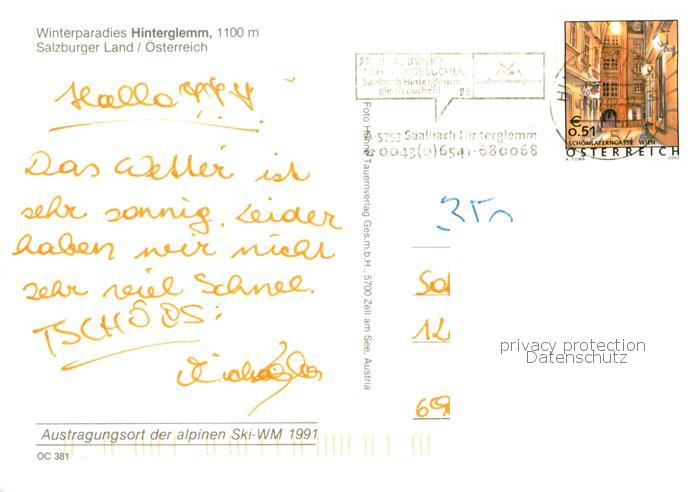 Winterparadies Hinterglemm, 1100 m
Salzburger Land / Österreich
Hallo
Das Wetter ist
sehr sonnig. Leider
haben wir nicht
sehr viel Schnee.
TSCHÖÖS:
Austragungsort der alpinen Ski-WM 1991
OC 381
Tauernverlag Ges.m.b.H., 5700 Zell am See, Austria
Saalbach Hinterglemm
gleich buchen!
5753 Saalbach Hinterglemm
0043(0)6541-680068
€ 0.51
SCHÖNLATERNGASSE WIEN
ÖSTERREICH
A. TUMA 2002
12
69
privacy protection
Datenschutz